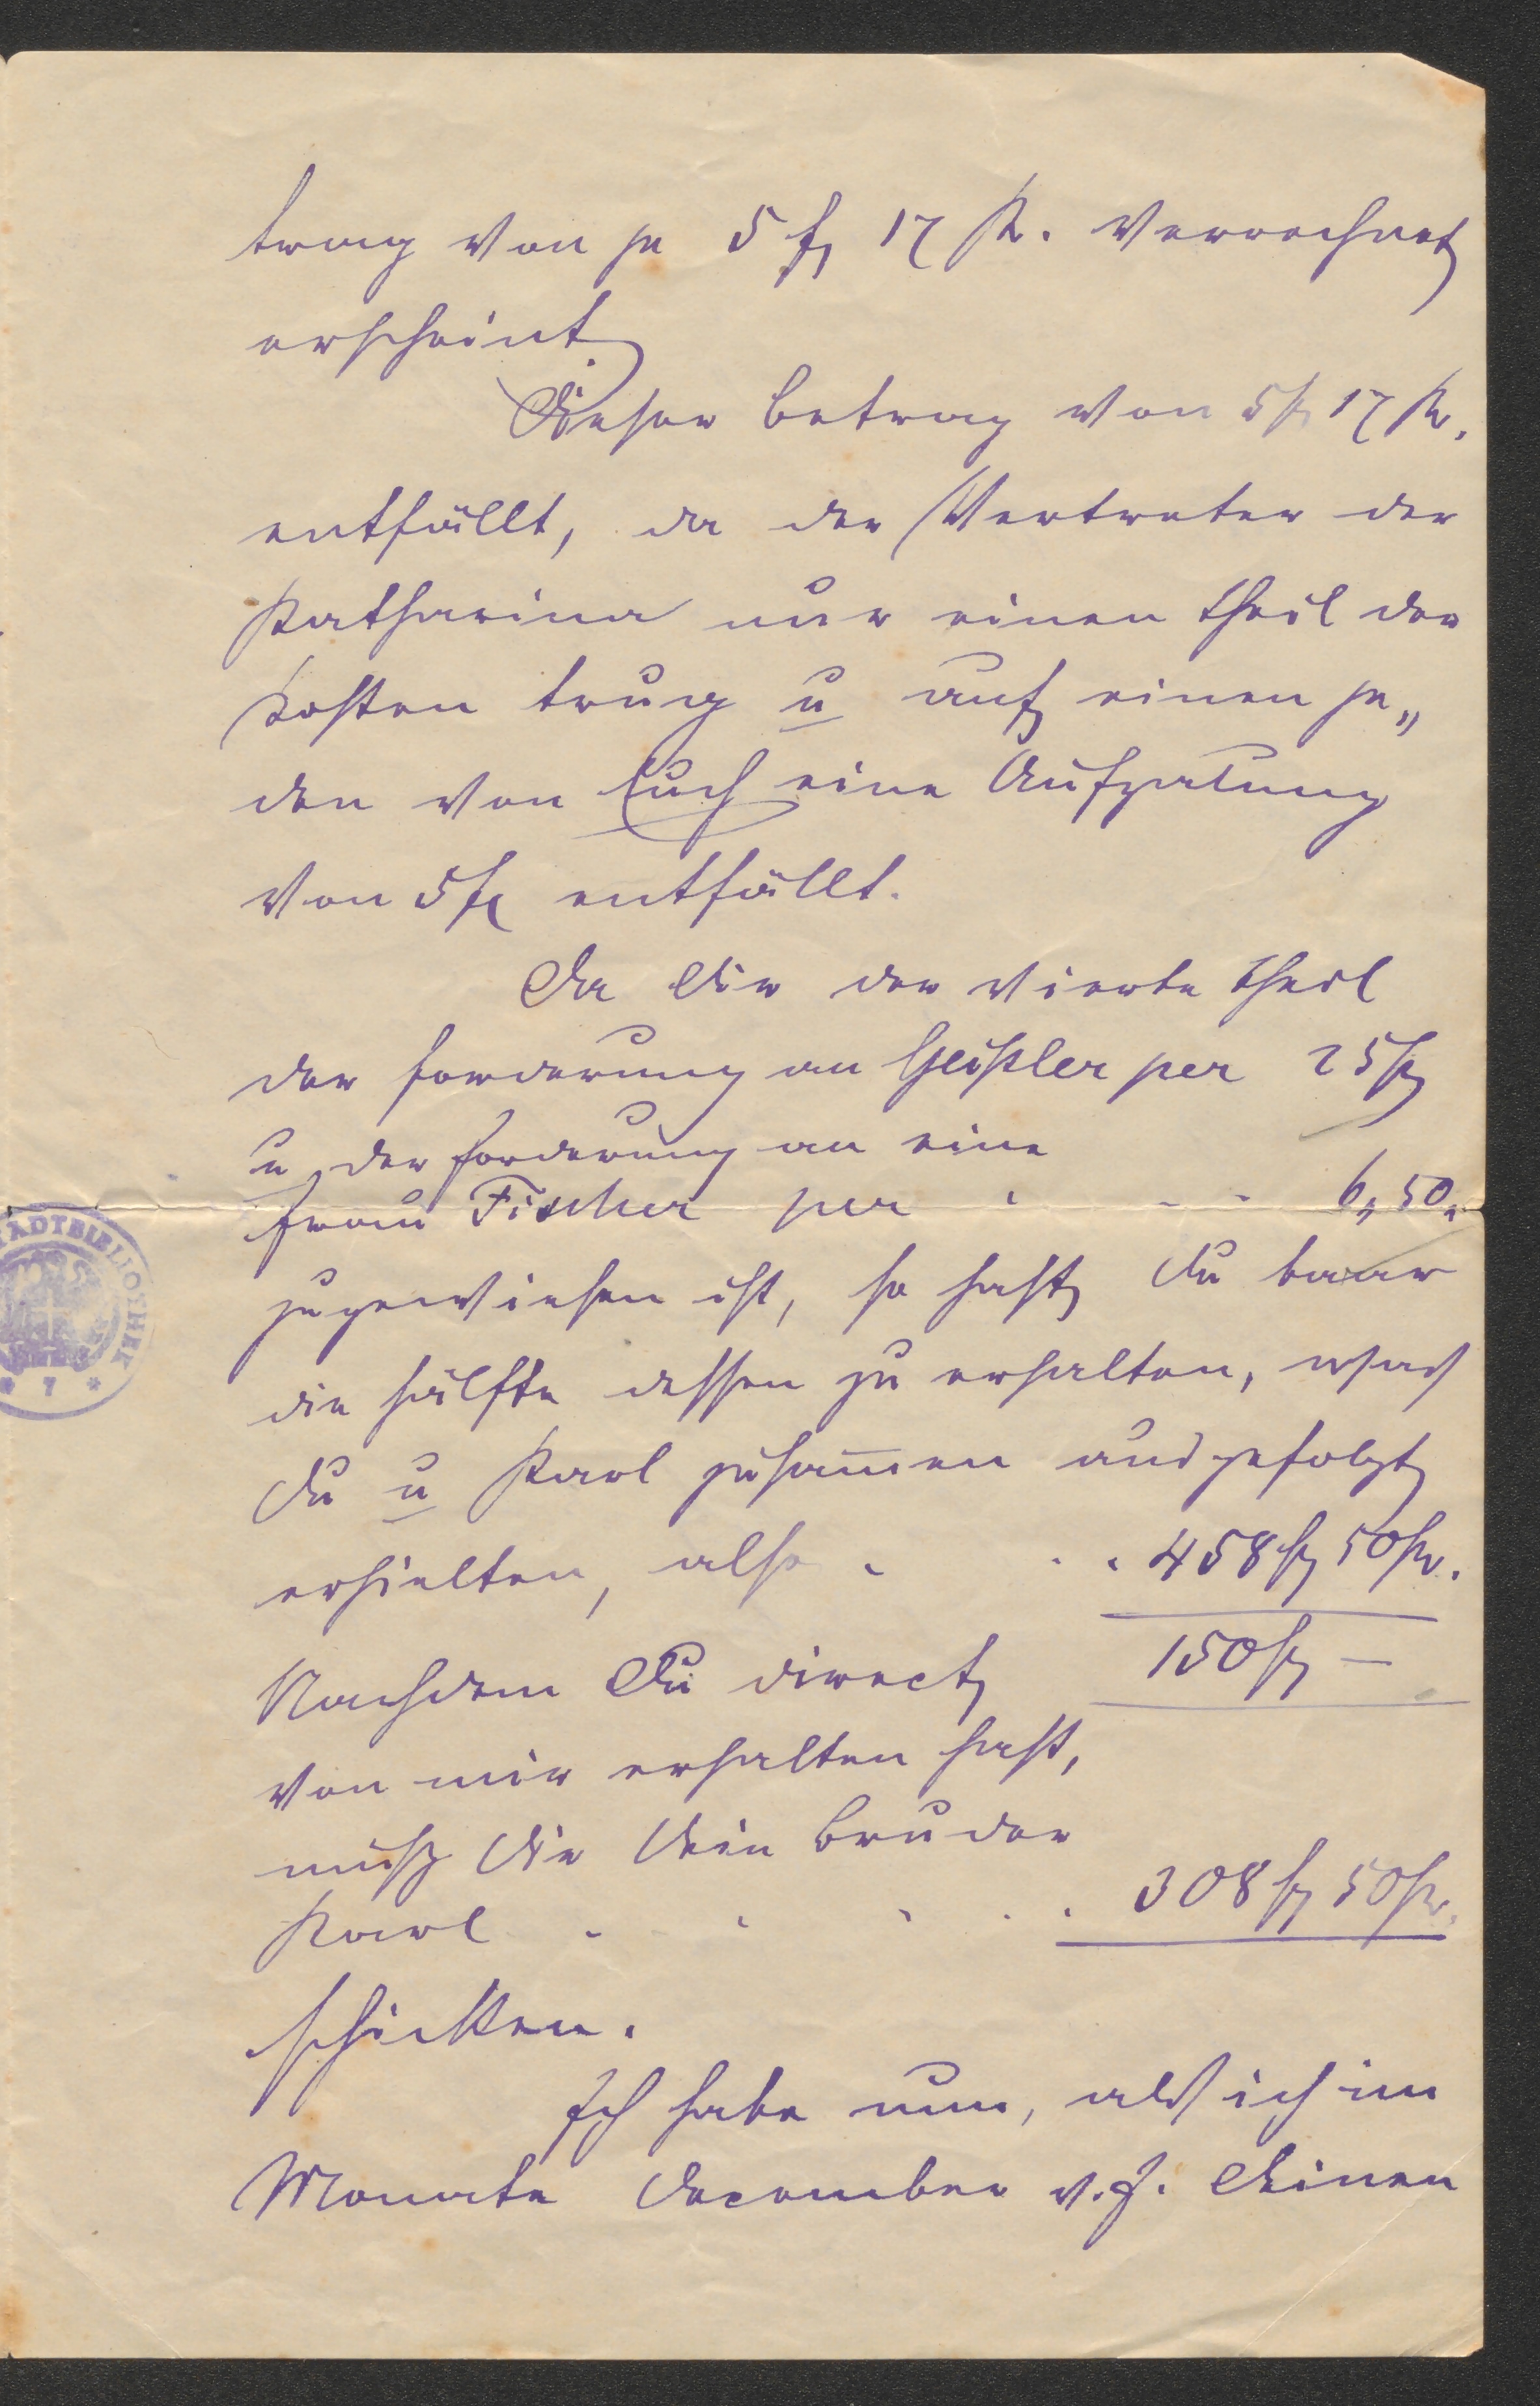 trag von je 5 fl 17 Kr. verrechnet
erscheint.
Dieser Betrag von 5 fl 17 Kr.
entfällt, da der Vertreter der
Katharina nur einen Theil der
Kosten trug u auf einen je„
den von Euch eine Aufzalung
von 5 fl entfällt.
Da Dir der vierte Theil
der Forderung an Geißler per 25 fl
u der Forderung an eine
Frau Fischer per . . . 6„ 50„
zugewiesen ist, so hast Du baar
die Hälfte dessen zu erhalten, was
Du u Karl zusam̅en ausgefolgt
erhielten, also . . . 458 fl 50 Kr.
Nachdem Du direct 150 fl —
von mir erhalten hast,
muß Dir Dein Bruder
Karl . . . . . 308 fl 50 Kr.
schicken.
Ich habe nun, als ich im
Monate December v. J. Deinen
STADTBIBLIOTHEK
* 7 *